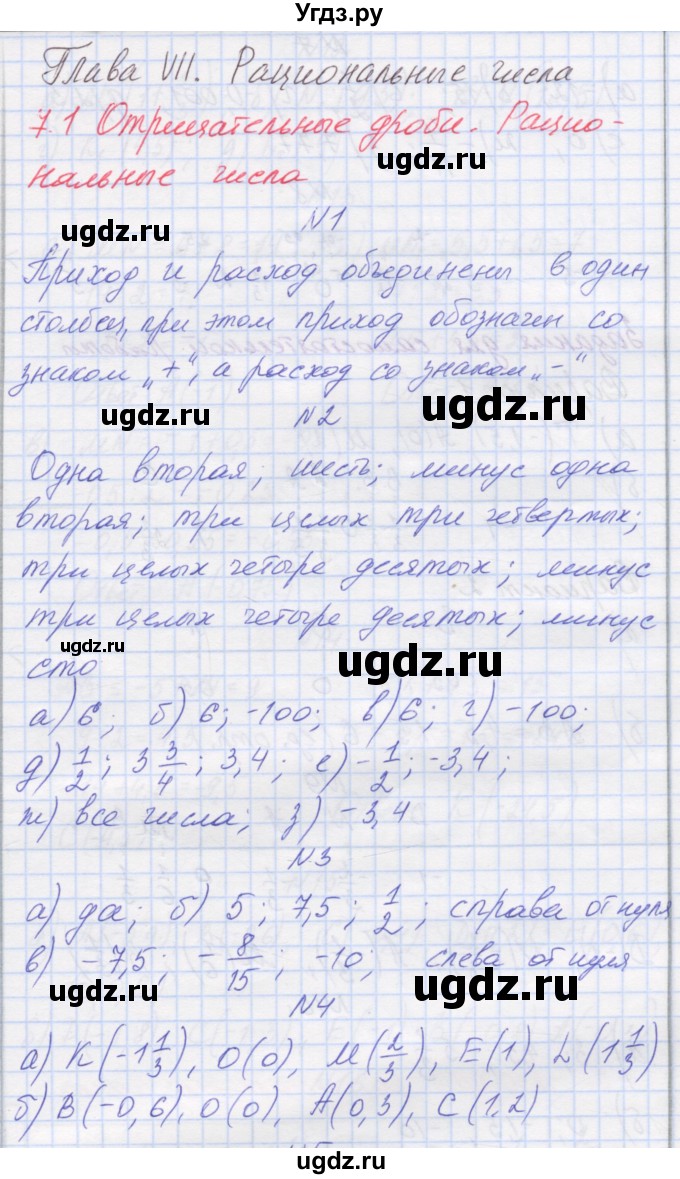 Угдз.ру
Глава VII. Рациональные числа
7.1 Отрицательные дроби. Рацио-
нальные числа
ugdz.ru
ugdz.ru
N1
Приход и расход объединены в один
столбец, при этом приход обозначен со
знаком „+", а расход со знаком „-"
ugdz.ru
ugdz.ru
N2
Одна вторая; шесть; минус одна
вторая; три целых три четвертых;
три целых четыре десятых; минус
три целых четыре десятых; минус
ugdz.ru
ugdz.ru
сто
а) 6; б) 6; -100; в) 6; г) -100;
д) 1/2; 3 3/4; 3,4; е) -1/2; -3,4;
ж) все числа; з) -3,4
ugdz.ru
N3
а) да; б) 5; 7,5; 1/2; справа от нуля
в) -7,5; -8/15; -10; слева от нуля
ugdz.ru
ugdz.ru
N4
а) K(-1 1/3), O(0), M(2/3), E(1), L(1 1/3)
б) B(-0,6), O(0), A(0,3), C(1,2)
ugdz.ru